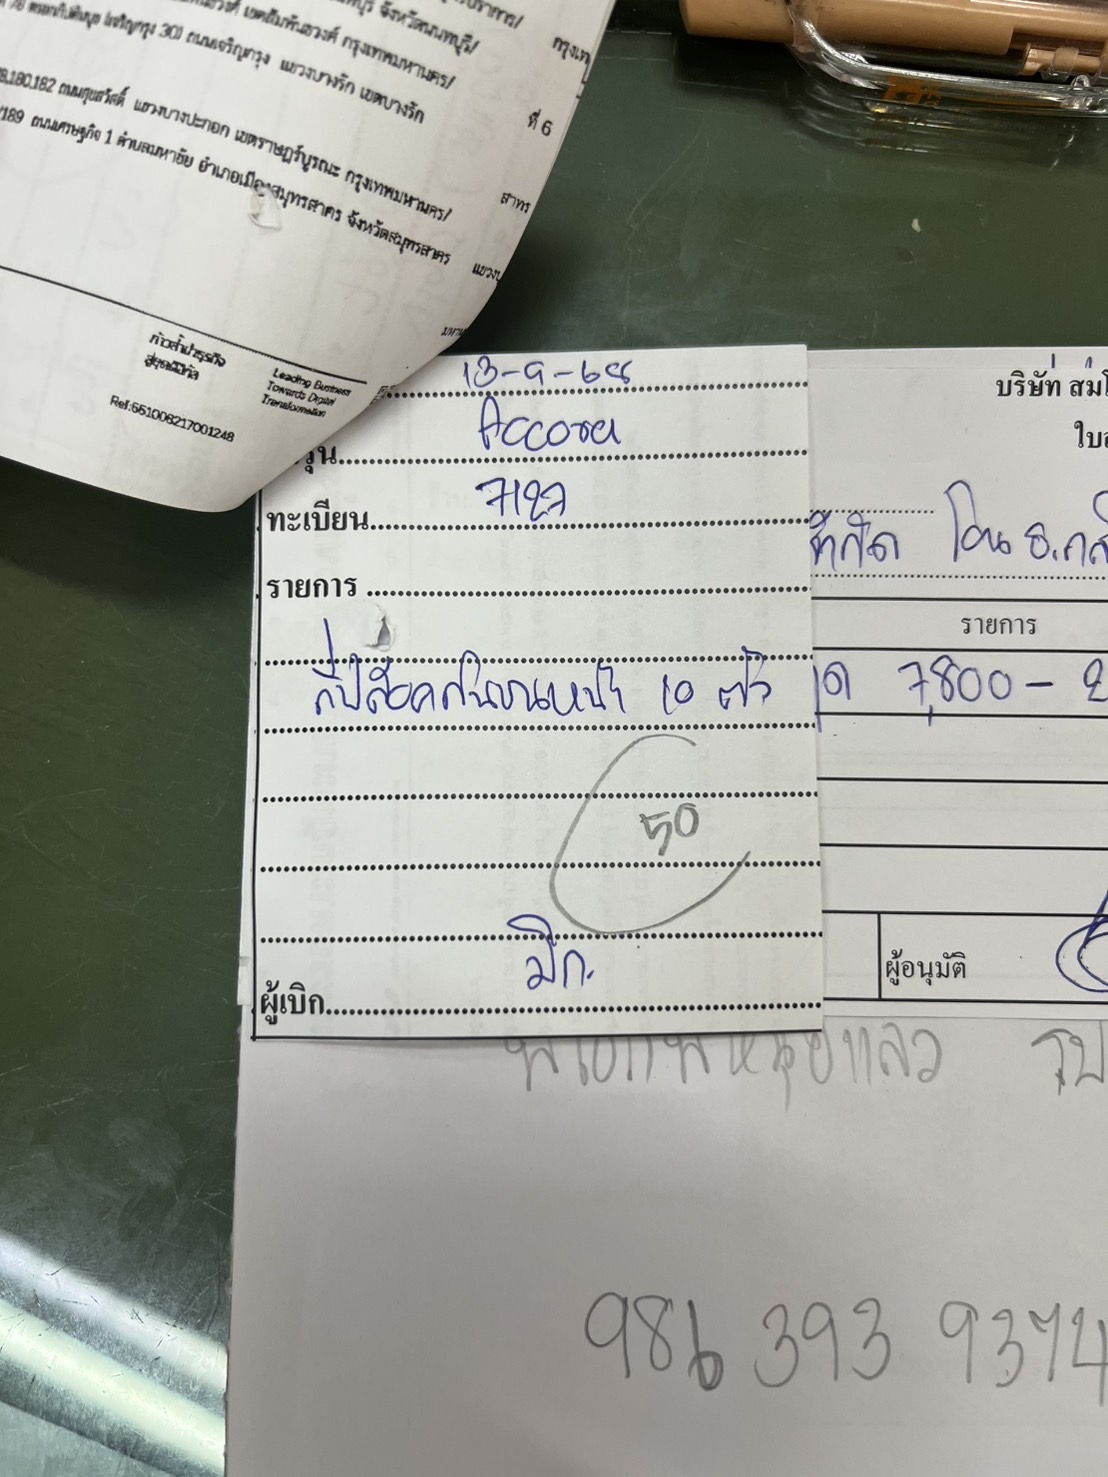 กรุงเทพ
จังหวัดนนทบุรี/
เขตสัมพันธวงศ์ กรุงเทพมหานคร/
ถนนเจริญกรุง แขวงบางรัก เขตบางรัก
ที่ 6
180,182 ถนนสุขสวัสดิ์ แขวงบางปะกอก เขตราษฎร์บูรณะ กรุงเทพมหานคร/
189 ถนนเศรษฐกิจ 1 ตำบลมหาชัย อำเภอเมืองสมุทรสาคร จังหวัดสมุทรสาคร
สาทร
ก้าวล้ำนำธุรกิจ
สู่ยุคดิจิทัล
Leading Business
Towards Digital
Transformation
Ref:661006217001248
13-9-68
Accord
ทะเบียน 7127
รายการ
กิ๊ปล็อคกันชนหน้า 10 ตัว
50
ผู้เบิก มิก.
บริษัท สม
ใบ
จำกัด โอน ธ.กสิ
รายการ
7,800 -
ผู้อนุมัติ
986 393 9374